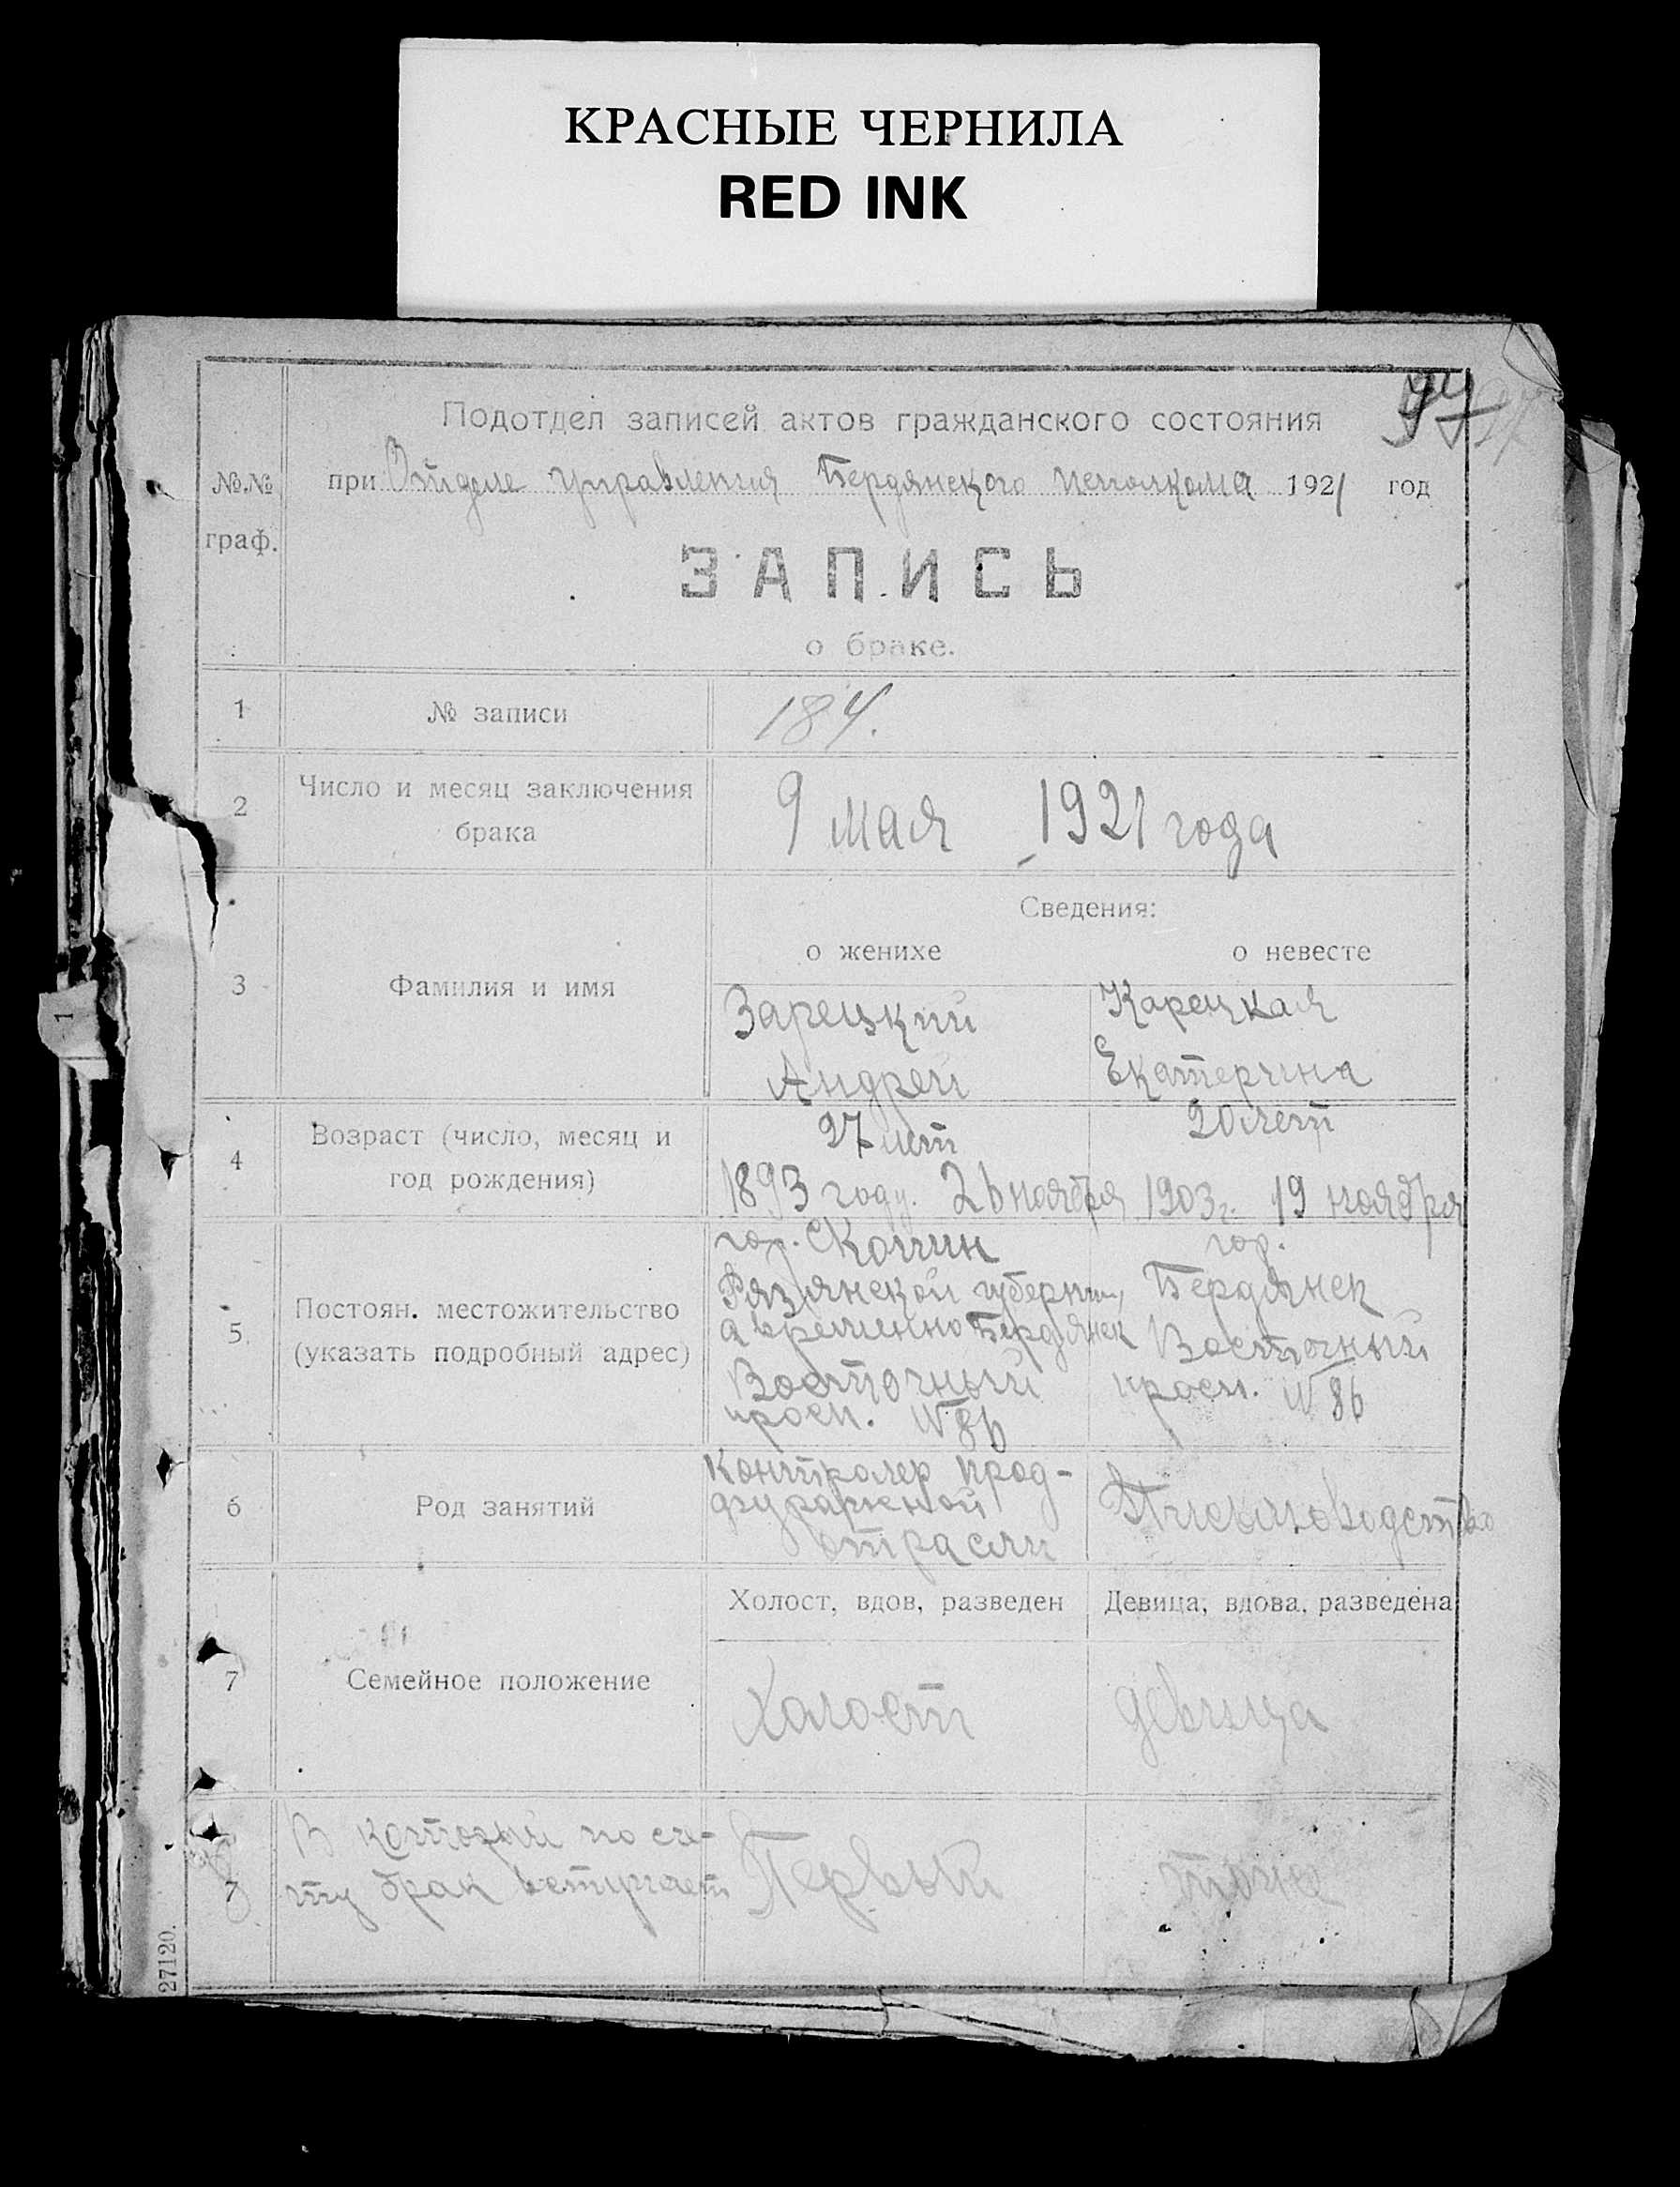 КРАСНЫЕ ЧЕРНИЛА
RED INK
Подотдел записей актов гражданского состояния
№.№ граф.
при Отделе Управления Бердянского исполкома 1921 год
ЗАПИСЬ
о браке.
1 № записи 184.
2 Число и месяц заключения брака 9 мая 1921 года
Сведения:
о женихе о невесте
3 Фамилия и имя
Зарецкий
Андрей
Карецкая
Екатерина
4 Возраст (число, месяц и
год рождения)
27 лет
1893 году. 26 ноября
20 лет
1903 г. 19 ноября
5 Постоян. местожительство
(указать подробный адрес)
гор. Скопин
Рязянской губернии,
а временно Бердянск
Восточный
просп. № 86
гор.
Бердянск
Восточный
просп. № 86
6 Род занятий
Контролер прод-
фуражной
отрасли
7 Семейное положение
Холост, вдов, разведен
Девица, вдова, разведена
Холост
девица
7
В который по сче-
ту брак вступает
Первый
тоже
27120.
1